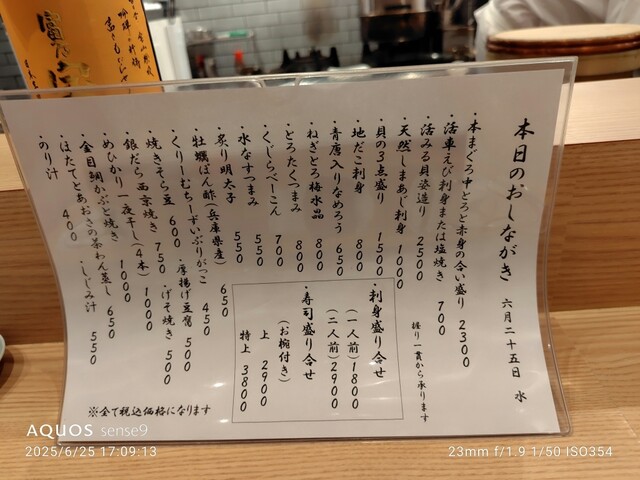 本日のおしながき 六月二十五日 水
・本まぐろ中とろと赤身の合い盛り 2300
・活車えび刺身または塩焼き 700
・活みる貝姿造り 2500
握り一貫から承ります
・天然しまあじ刺身 1000
・貝の3点盛り 1500
・地だこ刺身 800
・青唐入りなめろう 650
・ねぎとろ梅水晶 800
・とろたくつまみ 800
・くじらべーこん 700
・水なすつまみ 550
・炙り明太子 550
・牡蠣ぽん酢(兵庫県産) 650
・くりーむちーずいぶりがっこ 450
・焼きそら豆 600
・厚揚げ豆腐 500
・銀だら西京焼き 750
・げそ焼き 500
・めひかり一夜干し(4本) 1000
・金目鯛かぶと焼き 1000
・ほたてとあおさの茶わん蒸し 650
・のり汁 400
・しじみ汁 550
・刺身盛り合せ
(一人前)1800
(二人前)2900
・寿司盛り合せ
(お椀付き)
上 2900
特上 3800
※全て税込価格になります
AQUOS sense9
2025/6/25 17:09:13
23mm f/1.9 1/50 ISO354